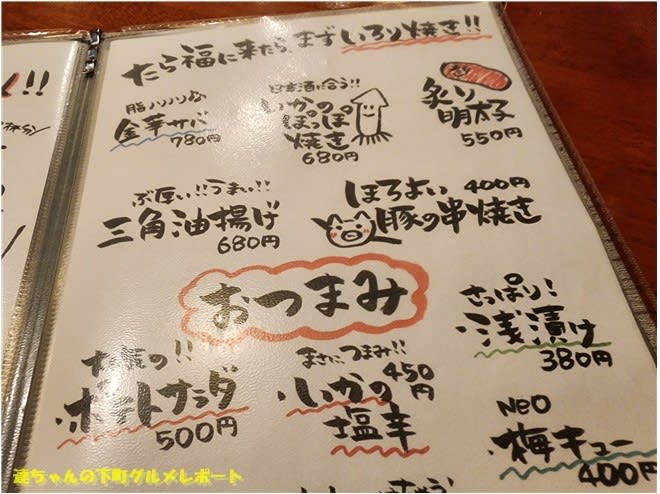 たら福に来たら、まずいろり焼き!!
脂ノリノリ
金華サバ
780円
日本酒に合う!!
いかの
ぽっぽ
焼き
680円
炙り
明太子
550円
ぶ厚い!!うまい!!
三角油揚げ
680円
ほろよい 400円
豚の串焼き
おつまみ
さっぱり!
・浅漬け
380円
!!
・ポテトサラダ
500円
まさにつまみ!!
・いかの
塩辛
450円
NEO
・梅キュー
400円
達ちゃんの下町グルメレポート